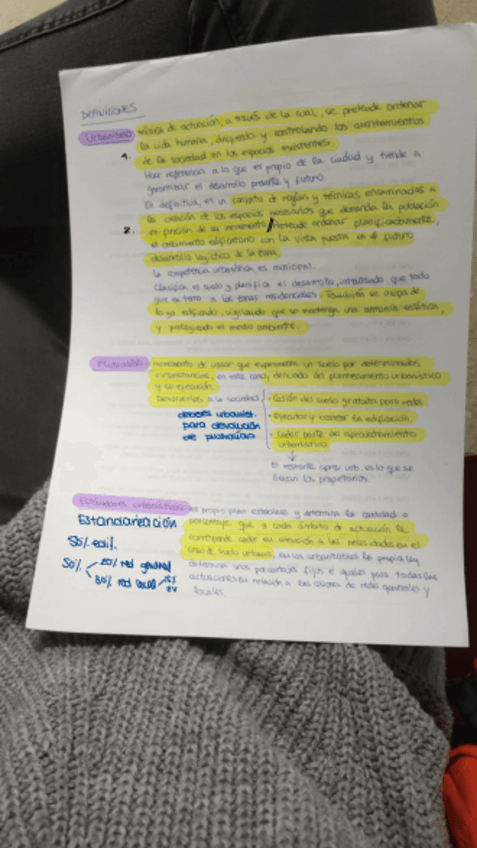 DEFINICIONES
Urbanismo: técnica de actuación, a través de la cual, se pretende ordenar
1. la vida humana, dirigiendo y controlando los asentamientos
de la sociedad en los espacios existentes.
Hace referencia a lo que es propio de la ciudad y tiende a
garantizar el desarrollo presente y futuro.
En definitiva, es un conjunto de reglas y técnicas encaminadas a
la creación de los espacios necesarios que demanda la población
2. en función de su incremento. Pretende ordenar planificadamente,
el crecimiento edificatorio con la vista puesta en el futuro
desarrollo logístico de la zona.
La competencia urbanística es municipal.
Clasifica el suelo y planifica el desarrollo, urbanizando que todo
que en torno a las zonas residenciales. También se ocupa de
lo ya edificado, vigilando que se mantenga una armonía estética,
y protegiendo el medio ambiente.
Plusvalías: incremento de valor que experimenta un suelo por determinadas
circunstancias, en este caso, derivado del planteamiento urbanístico
y su ejecución.
Devolverlas a la sociedad
- Cesión del suelo gratuita para redes
- Ejecutar y costear la edificación
- Ceder parte del aprovechamiento
urbanístico
deberes urbanist.
para devolución
de plusvalías
El restante aprov. urb. es lo que se
llevan los propietarios.
Estándares urbanísticos: es propio plan establece y determina la cantidad o
porcentaje que a cada ámbito de actuación le
corresponde ceder en atención a las necesidades en el
caso de suelo urbano, en los urbanizables la propia ley
determina unos porcentajes fijos e iguales para todas las
actuaciones en relación a las cesiones de redes generales y
locales.
Estandarización
50% edif.
50% 20% red general
80% red local